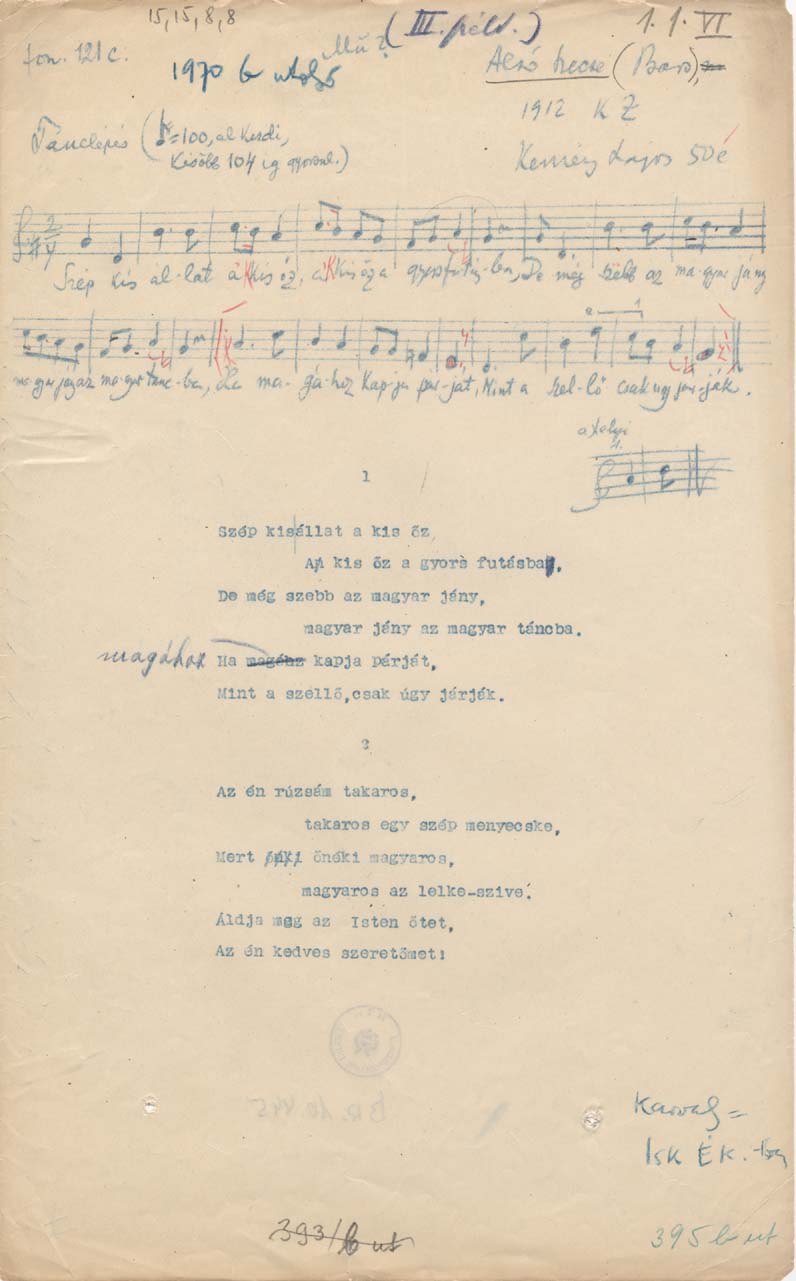 15, 15, 8, 8
(III. péld.)
1. f. VI
fon. 121 c.
Mű?
1970 b utolsó
Alsó szecse (Bars),
1912 K Z
Tánclépés (♩=100, al kezdi,
Később 104 ig gyorsul.)
Kemény Lajos 50 é
2/4
Szép kis ál-lat a kis őz, a kis őz a gyors futás-ben, De még szebb az ma-gyar jány
magyar jány az ma-gyar tánc-ba, Ha ma-gá-hoz kap-ja pár-ját, Mint a szel-lő csak úgy jár-ják.
1
Szép kisállat a kis őz,
A kis őz a gyors futásba,
De még szebb az magyar jány,
magyar jány az magyar táncba.
magához
Ha magáhz kapja párját,
Mint a szellő,csak úgy járják.
2
Az én rúzsám takaros,
takaros egy szép menyecske,
Mert őnéki magyaros,
magyaros az lelke-szive.
Áldja meg az Isten őtet,
Az én kedves szeretőmet!
393/b ut
395 b ut